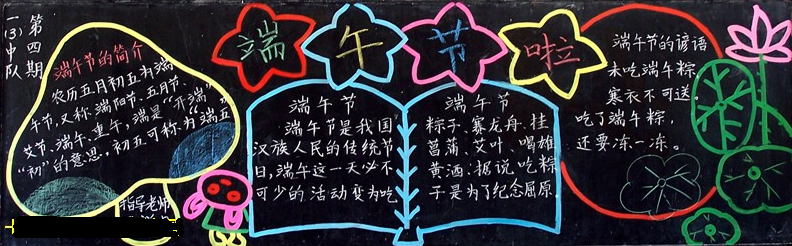 第四期
一(3)中队
端午节啦
端午节的简介
农历五月初五为端
午节,又称端阳节、五月节、
艾节、端午、重午,端是“开端”
“初”的意思,初五可称为“端五”
指导老师
端午节
端午节是我国
汉族人民的传统节
日,端午这一天必不
可少的活动变为吃
端午节
粽子、赛龙舟、挂
菖蒲、艾叶、喝雄
黄酒;据说吃粽
子是为了纪念屈原.
端午节的谚语
未吃端午粽,
寒衣不可送。
吃了端午粽,
还要冻一冻。